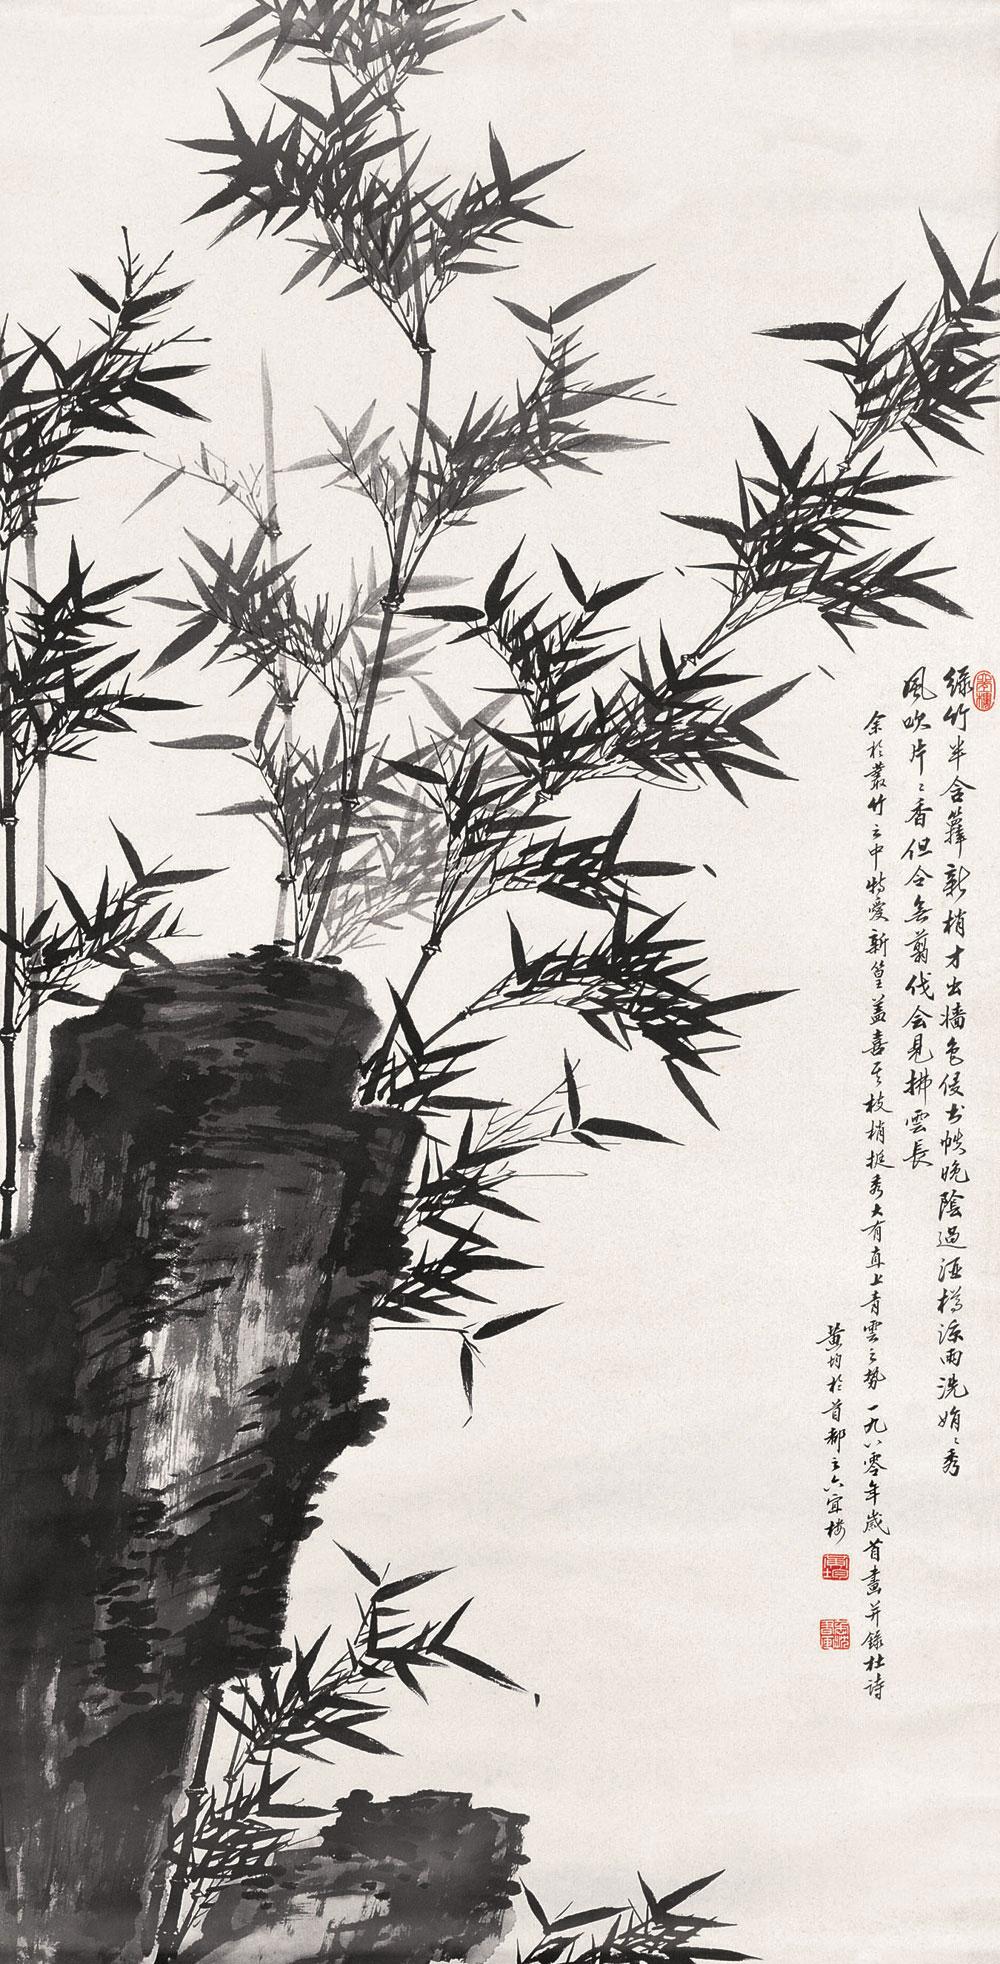 绿竹半含籜新梢才出墙色侵书帙晚陰過酒樽涼雨洗娟〻秀
風吹片〻香但令無翦伐会見拂雲長
余於叢竹之中特愛新篁盖喜其枝梢挺秀大有直上青雲之势一九八零年歲首畫并錄杜诗
黄均於首都之六宜楼